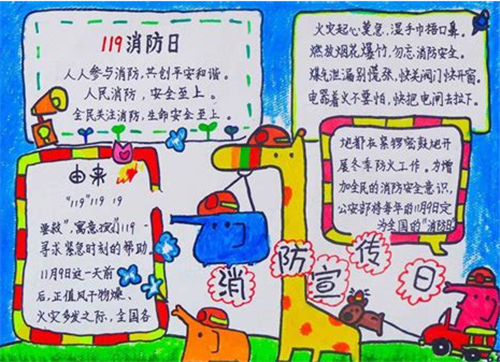 119消防日
人人参与消防,共创平安和谐。
人民消防,安全至上。
全民关注消防,生命安全至上。
火灾起心莫急,湿手巾捂口鼻。
燃放烟花爆竹,勿忘消防安全。
煤气泄漏别慌张,快关阀门快开窗。
电器着火不要怕,快把电闸去拉下。
由来
"119" 119 19
要救",寓意"119-
寻求紧急时刻的帮助。
11月9日这一天前
后,正值风干物燥、
火灾多发之际,全国各
地都在紧锣密鼓地开
展冬季防火工作。为增
加全民的消防安全意识,
公安部将每年的11月9日定
为全国的"消防日
消防宣传日